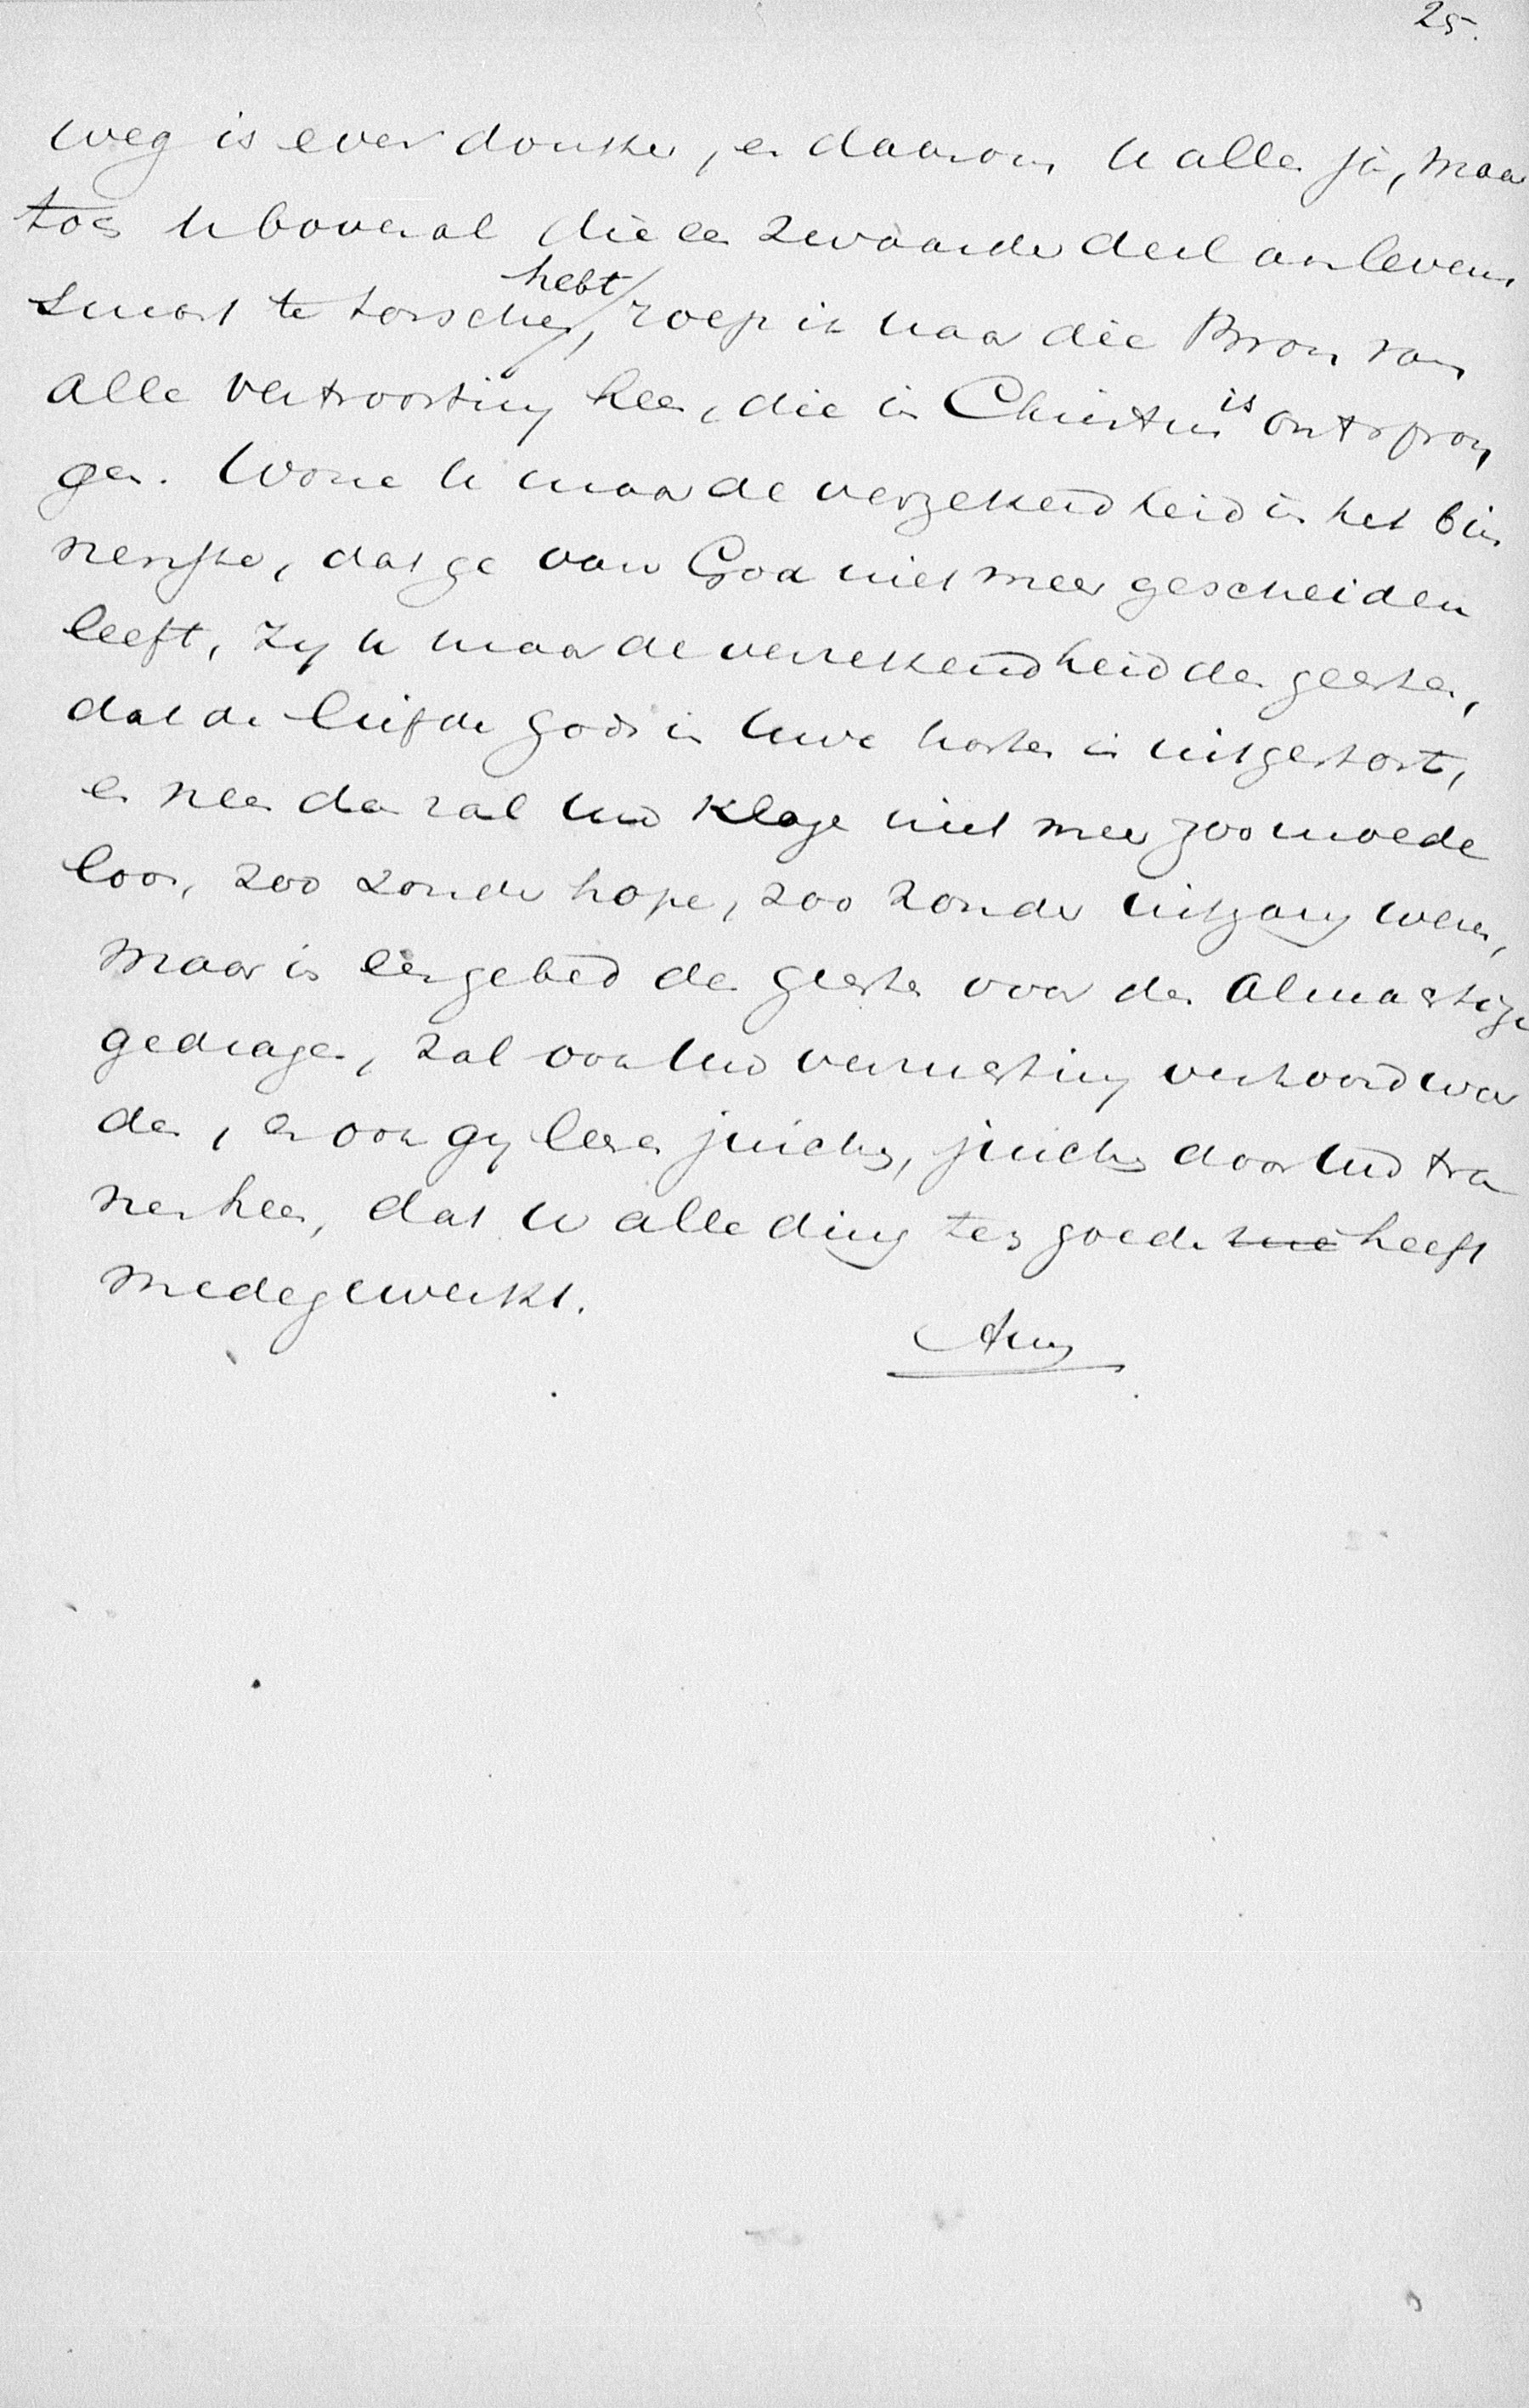 25.
weg is even donker, en daarom u allen ja, maar
toch u bovenal die een zwaarder deel aan levens
smart te torschen hebt, roep ik naar die Bron van
alle vertroosting heen, die in Christus is ontspron
gen. Wone u maar de verzekerdheid in het bin
nenste, dat ge van God niet meer gescheiden
leeft, zy u maar de verzekerdheid des geestes,
dat de liefde Gods in uwe harten is uitgestort,
en neen dan zal uw klage niet meer zoo moede
loos, zoo zonder hope, zoo zonder uitgang wezen,
maar is een gebed des geestes voor den Almachtige
gedragen, zal ook uw verzuchting verhoord wor
den, en ook gy leeren juichen, juichen door uw tra
nen heen, dat u alle ding ten goede heeft
medegewerkt.
Amen